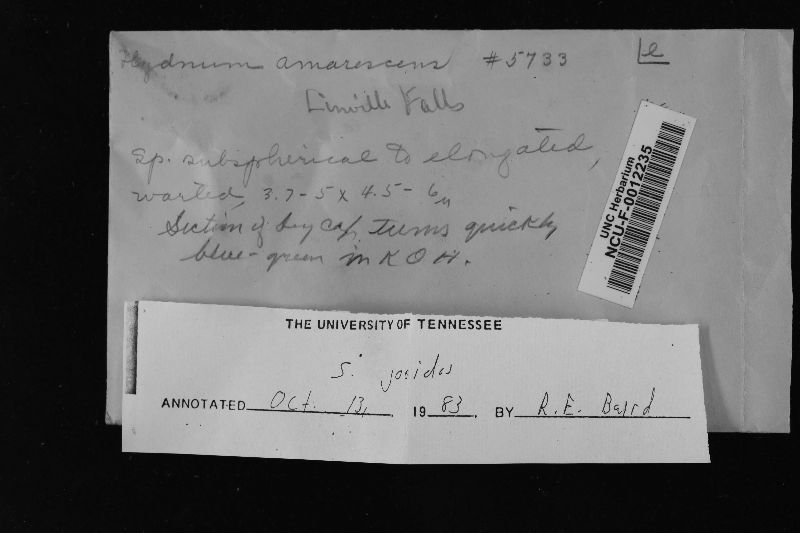 Hydnum amarescens #5733 e
Linville Falls
sp. subspherical to elongated,
warted, 3.7-5 x 4.5-6µ
Section of dry cap turns quickly
blue-green in KOH.
UNC Herbarium
NCU-F-0012235
THE UNIVERSITY OF TENNESSEE
S.
ANNOTATED Oct. 13, 19 83. BY R.E. Baird